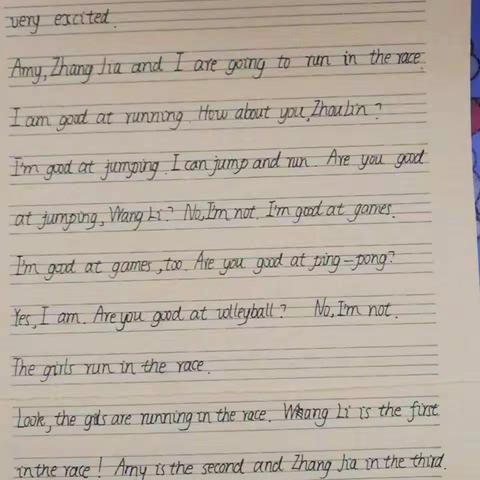 very excited.
Amy, Zhang Jia and I are going to run in the race.
I am good at running. How about you, Zhou Lin?
I'm good at jumping. I can jump and run. Are you good
at jumping, Wang Li? No, I'm not. I'm good at games.
I'm good at games, too. Are you good at ping-pong?
Yes, I am. Are you good at volleyball? No, I'm not.
The girls run in the race.
Look, the girls are running in the race. Whang Li is the first
in the race! Amy is the second and Zhang Jia in the third.